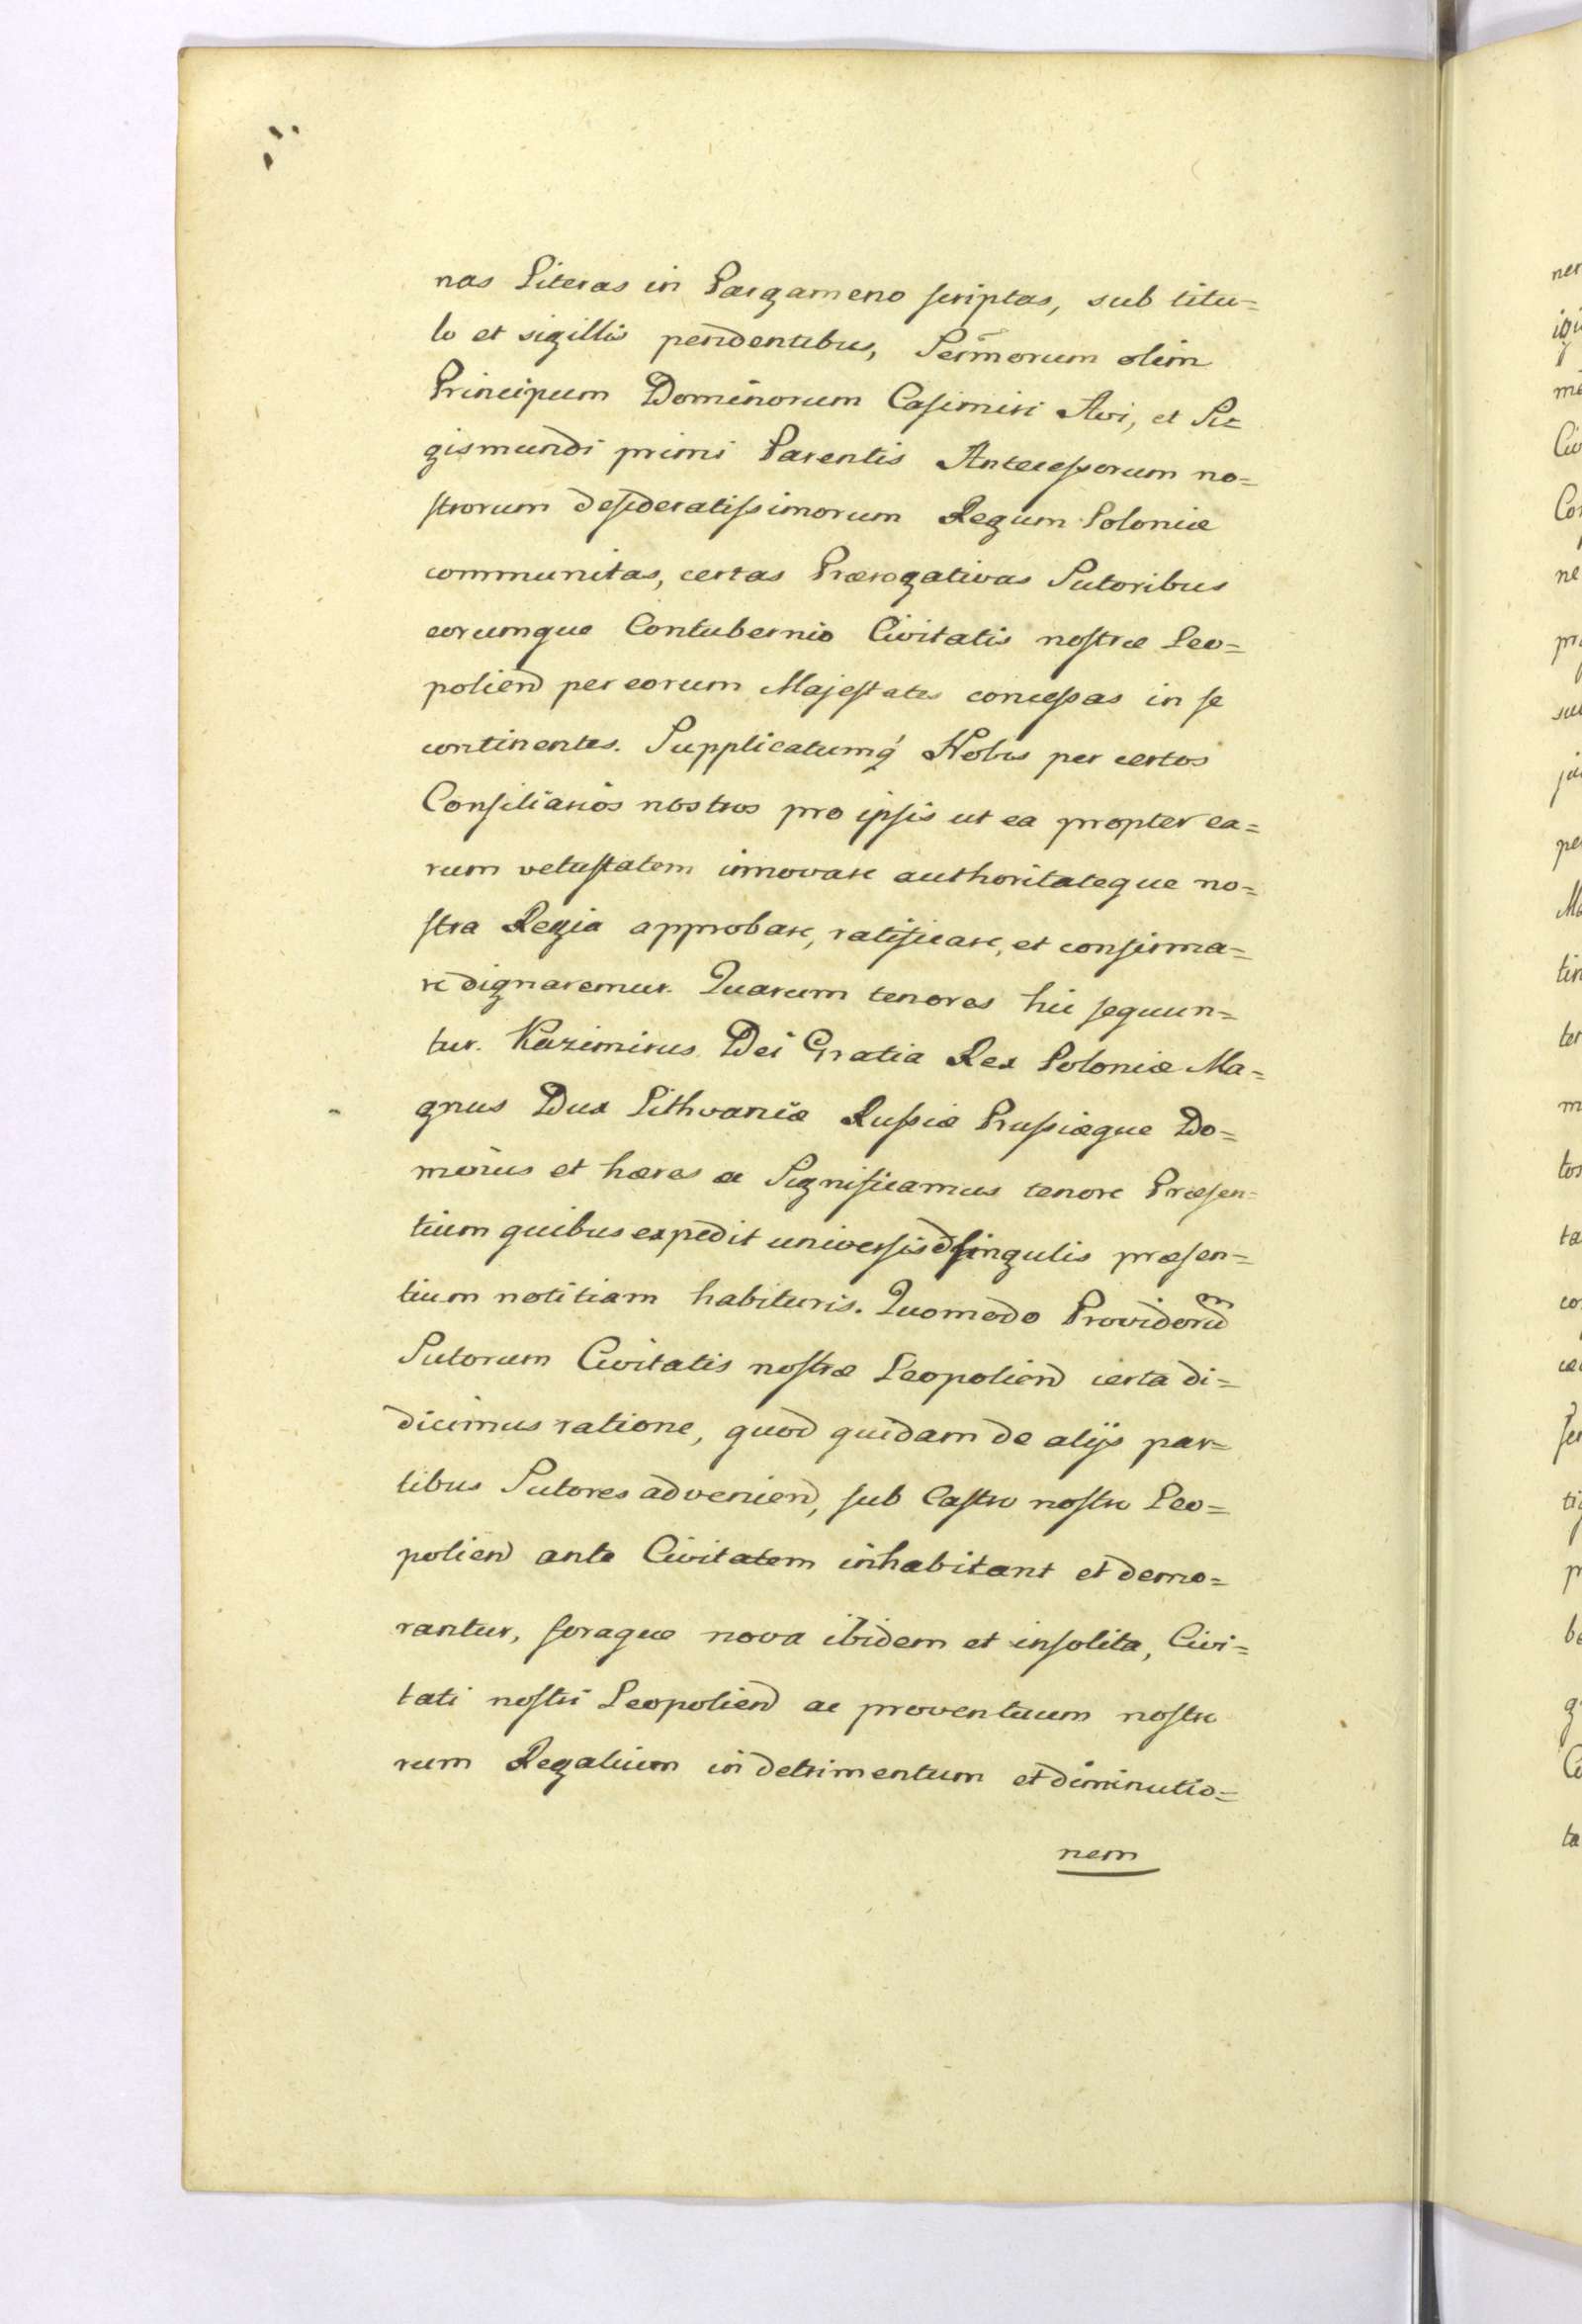 nas Literas in Pargameno scriptas, sub titu=
lo et sigillis pendentibus, Sermorum olim
Principum Dominorum Casimiri Avi, et Si=
gismundi primi Parentis Antecessorum no=
strorum desideratissimorum Regum Poloniæ
communitas, certas Prærogativas Sutoribus
eorumque Contubernio Civitatis nostræ Leo=
poliend per eorum Majestates concessas in se
continentes. Supplicatumq́ Nobis per certos
Consiliarios nostros pro ipsis ut ea propter ea=
rum vetustatem innovare authoritateque no=
stra Regia approbare, ratificare, et confirma=
re dignaremur. Quarum tenores hic sequun=
tur. Kazimirus Dei Gratia Rex Poloniæ Ma=
gnus Dux Lithvaniæ Russiæ Prussiæque Do=
minus et hæres &c Significamus tenore Præsen=
tium quibus expedit universis & singulis præsen=
tium notitiam habituris. Quomodo Providorum
Sutorum Civitatis nostræ Leopoliend certa di=
dicimus ratione, quod quidam de alijs par=
tibus Sutores advenien, sub Castro nostro Leo=
poliend ante Civitatem inhabitant et demo=
rantur, foraque nova ibidem et insolita, Civi=
tati nostri Leopoliend ac proventuum nostro
rum Regalium in detrimentum et diminutio=
nem
ner